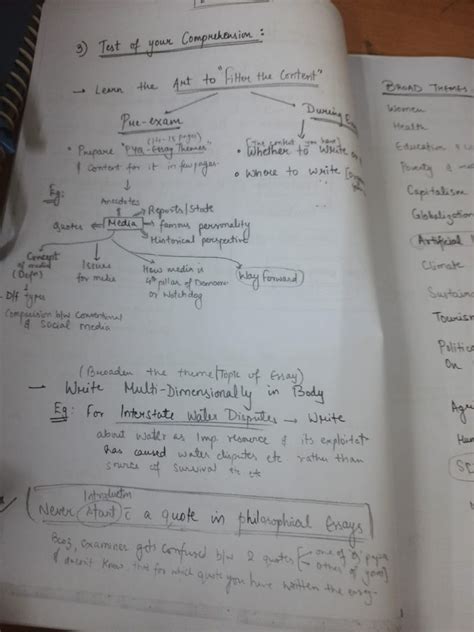 3) Test of your Comprehension:
→ Learn the Art to "Filter the Content"
Pre-exam
During
(14-15 pages)
• Prepare "PYQs-Essay Themes"
& content for it in few pages.
[The content you have]
• Whether to Write
• Where to Write
Eg:
Anecdotes
Reports/Stats
Quotes
Media
famous personality
Historical perspective
Concept
of media
(Defn)
Issues
for media
How media is
4th pillar of Democracy
or Watchdog
Way Forward
- Diff types
Comparision b/w conventional
& social media
(Broaden the theme/Topic of Essay)
→ Write Multi-Dimensionally in Body
Eg: For Interstate Water Disputes → Write
about water as Imp resource & its exploitat
has caused water disputes etc rather than
of survival etc etc
Introduction
Never Start c̄ a quote in philosophical Essays
Bcoz, examiner gets confused b/w 2 quotes
one of
other of yours
& doesn't know that for which quote you have written the essay
BROAD THEMES
Women
Health
Education &
Poverty &
Capitalism
Globalization
Artificial
Climate
Sustain
Tourism
Politic
on
Agri
Hum